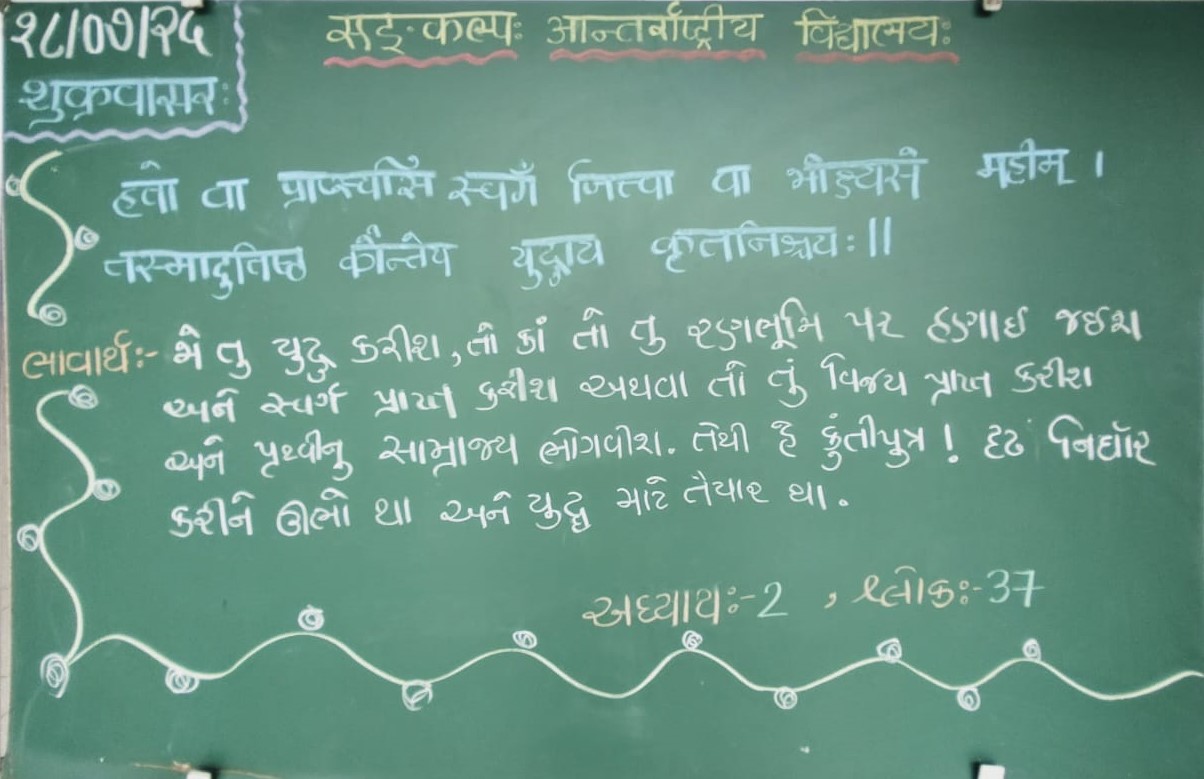 १८/०७/२५
शुक्रवासरः
सङ्कल्पः आन्तर्राष्ट्रीय विद्यालयः
हतो वा प्राप्स्यसि स्वर्गं जित्वा वा भोक्ष्यसे महीम् ।
तस्मादुत्तिष्ठ कौन्तेय युद्धाय कृतनिश्चयः ॥
ભાવાર્થઃ- જો તુ યુદ્ધ કરીશ, તો કાં તો તુ રણભૂમિ પર હણાઈ જઈશ
અને સ્વર્ગ પ્રાપ્ત કરીશ અથવા તો તું વિજય પ્રાપ્ત કરીશ
અને પૃથ્વીનુ સામ્રાજ્ય ભોગવીશ. તેથી હે કુંતીપુત્ર ! દઢ નિર્ધાર
કરીને ઊભો થા અને યુદ્ધ માટે તૈયાર થા.
અધ્યાયઃ-2 , શ્લોકઃ-37